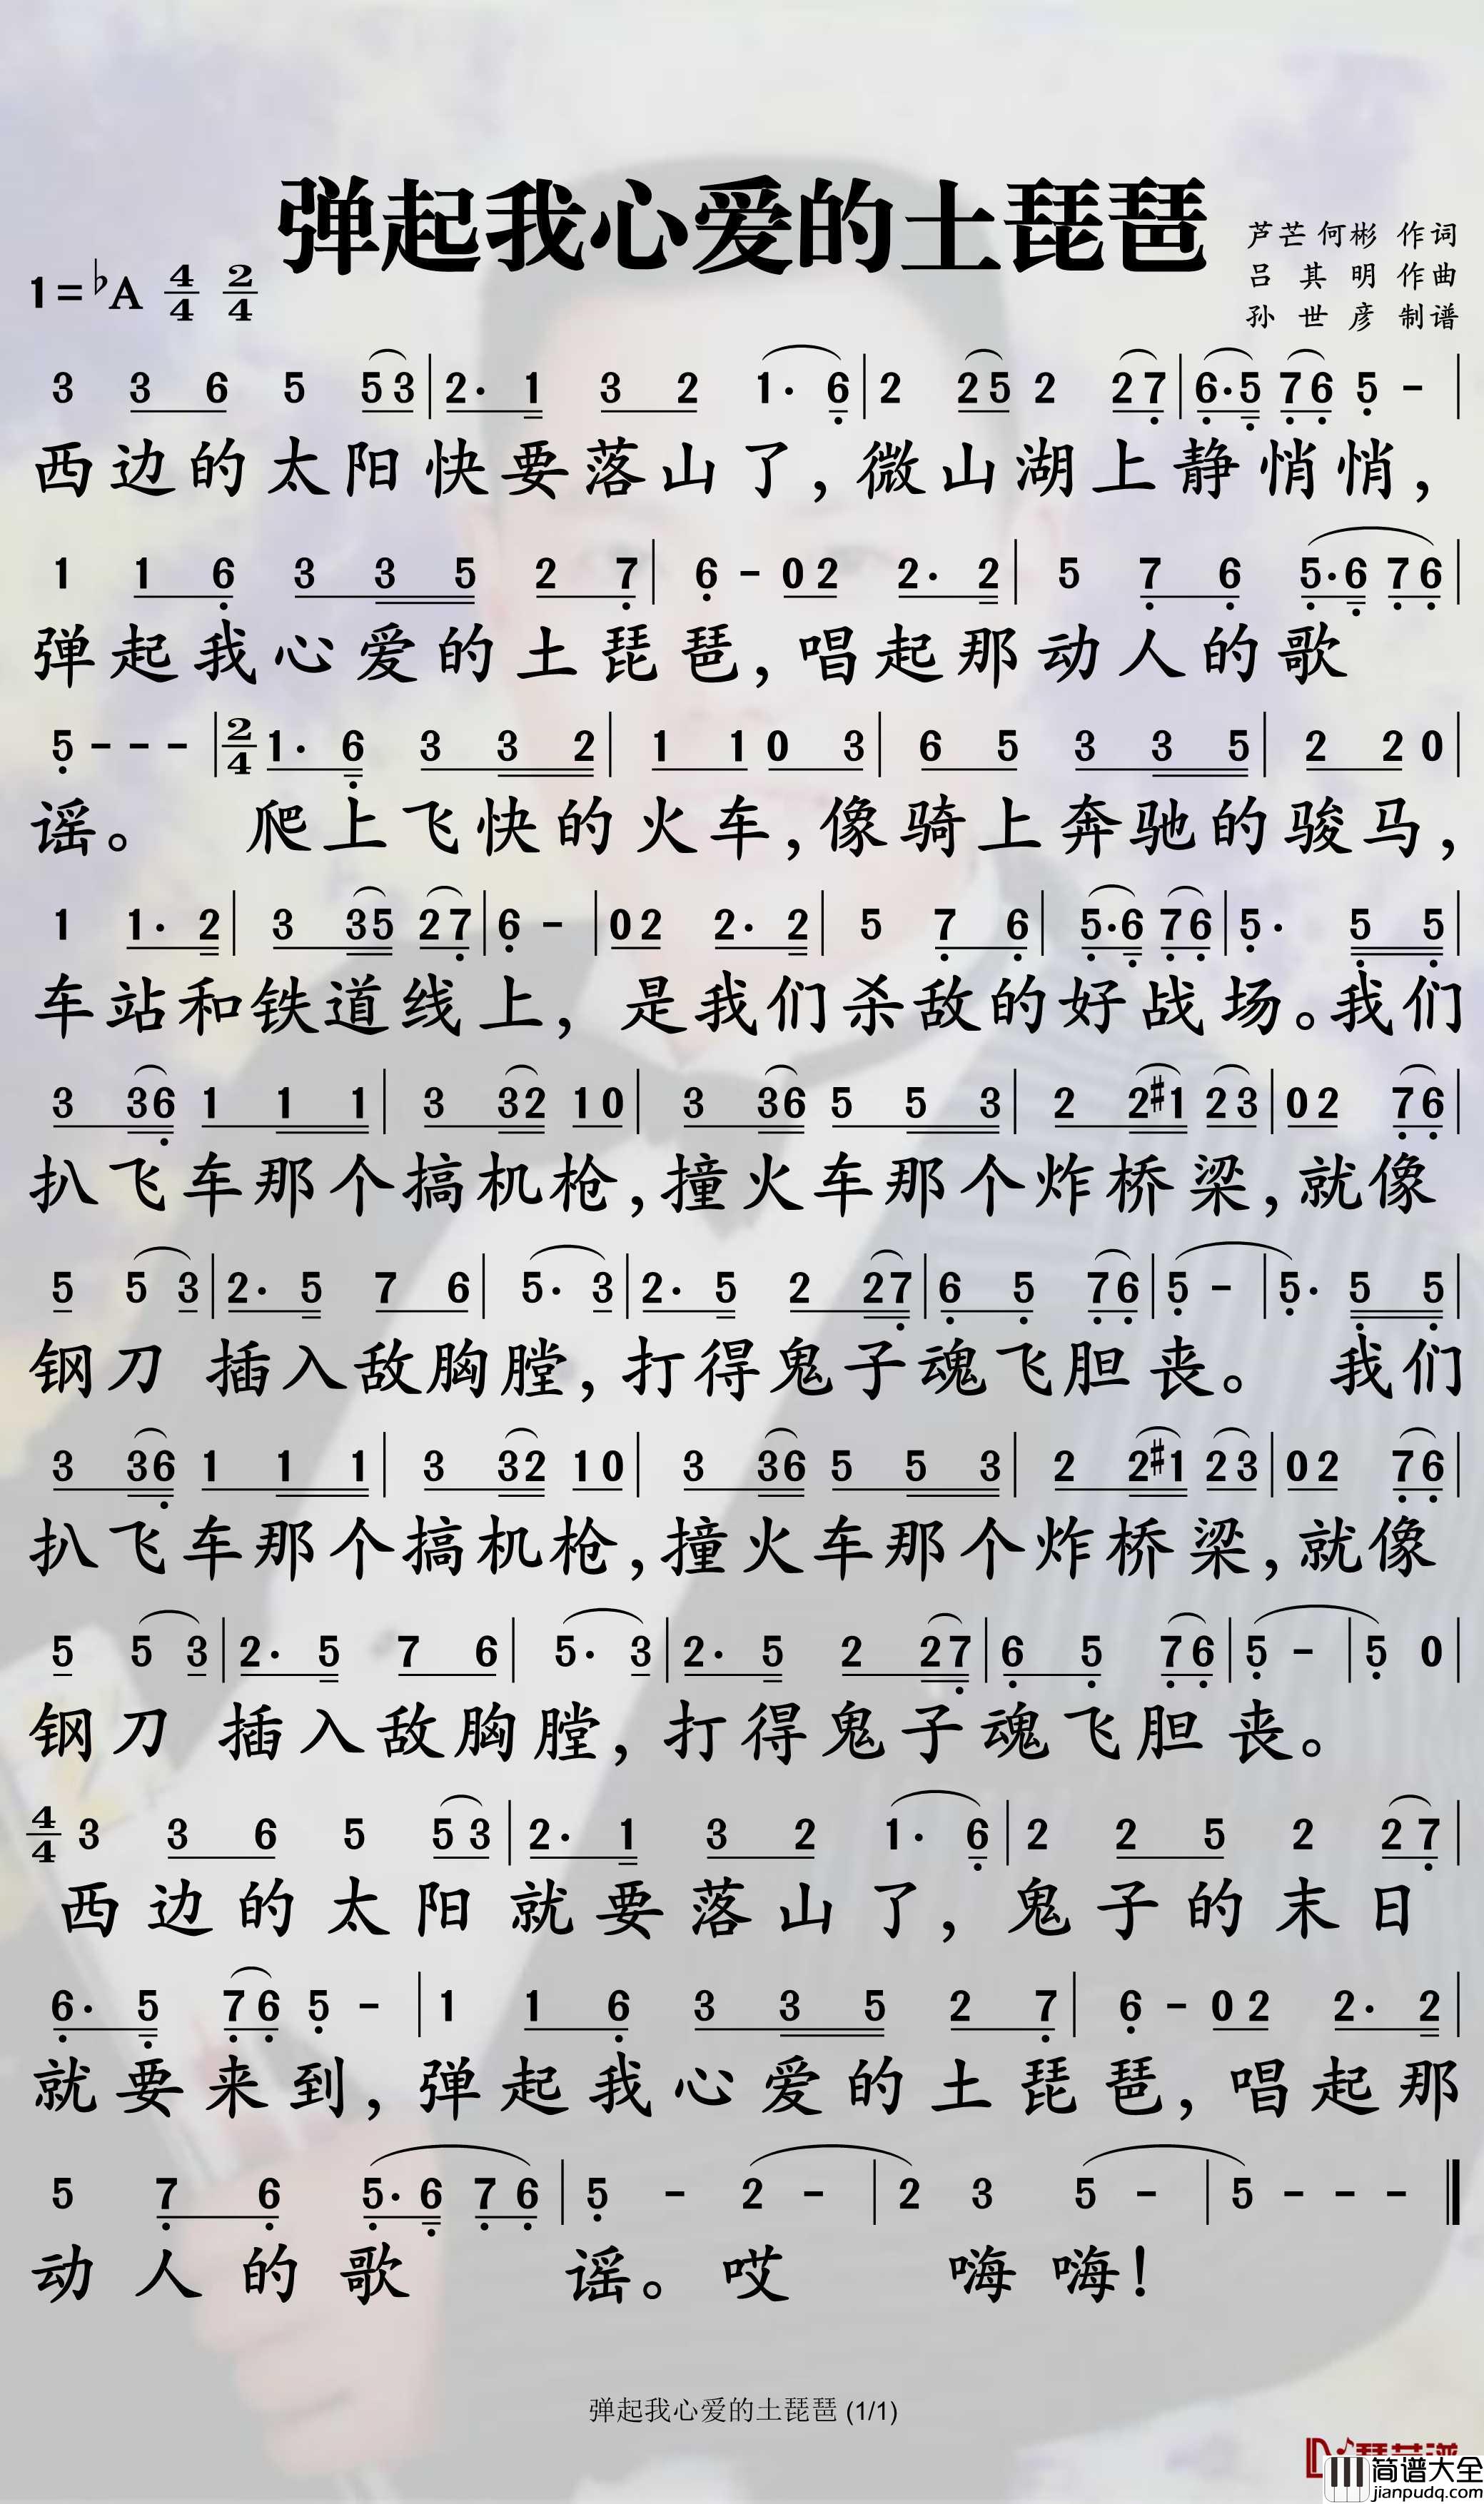 弹起我心爱的土琵琶
芦芒 何彬 作词
吕其明 作曲
孙世彦 制谱
1=♭A 4/4 2/4
3 3 6 5 5 3 | 2· 1 3 2 1· 6 | 2 2 5 2 2 7 | 6· 5 7 6 5 - |
西边的太阳快要落山了,微山湖上静悄悄,
1 1 6 3 3 5 2 7 | 6 - 0 2 2· 2 | 5 7 6 5· 6 7 6 |
弹起我心爱的土琵琶,唱起那动人的歌
5 - - - | 2/4 1· 6 3 3 2 | 1 1 0 3 | 6 5 3 3 5 | 2 2 0 |
谣。 爬上飞快的火车,像骑上奔驰的骏马,
1 1· 2 | 3 3 5 2 7 | 6 - | 0 2 2· 2 | 5 7 6 | 5· 6 7 6 | 5· 5 5 |
车站和铁道线上,是我们杀敌的好战场。我们
3 3 6 1 1 1 | 3 3 2 1 0 | 3 3 6 5 5 3 | 2 2 #1 2 3 | 0 2 7 6 |
扒飞车那个搞机枪,撞火车那个炸桥梁,就像
5 5 3 | 2· 5 7 6 | 5· 3 | 2· 5 2 2 7 | 6 5 7 6 | 5 - | 5· 5 5 |
钢刀 插入敌胸膛,打得鬼子魂飞胆丧。 我们
3 3 6 1 1 1 | 3 3 2 1 0 | 3 3 6 5 5 3 | 2 2 #1 2 3 | 0 2 7 6 |
扒飞车那个搞机枪,撞火车那个炸桥梁,就像
5 5 3 | 2· 5 7 6 | 5· 3 | 2· 5 2 2 7 | 6 5 7 6 | 5 - | 5 0 |
钢刀 插入敌胸膛,打得鬼子魂飞胆丧。
4/4 3 3 6 5 5 3 | 2· 1 3 2 1· 6 | 2 2 5 2 2 7 |
西边的太阳就要落山了,鬼子的末日
6· 5 7 6 5 - | 1 1 6 3 3 5 2 7 | 6 - 0 2 2· 2 |
就要来到,弹起我心爱的土琵琶,唱起那
5 7 6 5· 6 7 6 | 5 - 2 - | 2 3 5 - | 5 - - - ‖
动人的歌 谣。哎 嗨嗨!
弹起我心爱的土琵琶 (1/1)
简谱大全
jianpudq.com